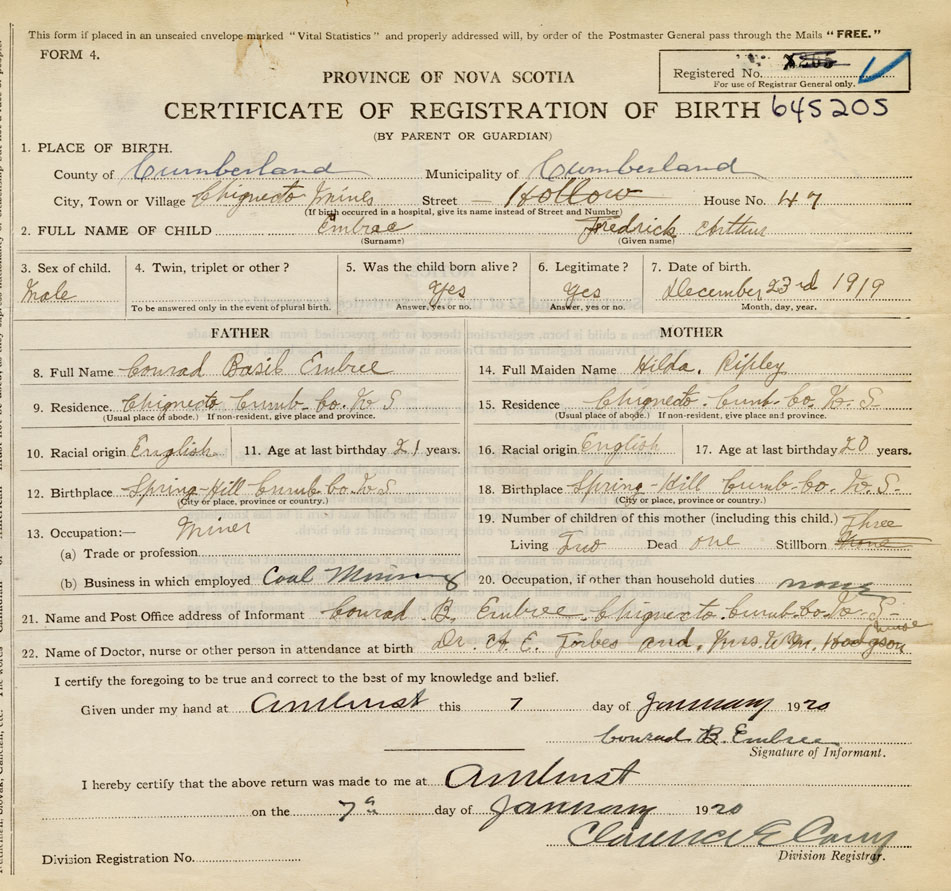 This form if placed in an unsealed envelope marked "Vital Statistics" and properly addressed will, by order of the Postmaster General pass through the Mails "FREE."
FORM 4.
Registered No.
For use of Registrar General only.
PROVINCE OF NOVA SCOTIA
CERTIFICATE OF REGISTRATION OF BIRTH 645205
(BY PARENT OR GUARDIAN)
1. PLACE OF BIRTH.
County of Cumberland Municipality of Cumberland
City, Town or Village Chignecto Mines Street — Hollow House No. 47
(If birth occurred in a hospital, give its name instead of Street and Number)
2. FULL NAME OF CHILD Embree Fredrick Arthur
(Surname) (Given name)
3. Sex of child. 4. Twin, triplet or other? 5. Was the child born alive? 6. Legitimate? 7. Date of birth.
Male Yes Yes December 23rd 1919
To be answered only in the event of plural birth. Answer, yes or no. Answer, yes or no. Month, day, year.
FATHER MOTHER
8. Full Name Conrad Basil Embree 14. Full Maiden Name Hilda. Ripley
9. Residence. Chignecto Cumb. Co. N. S 15. Residence Chignecto. Cumb. Co. N. S.
(Usual place of abode.) If non-resident, give place and province. (Usual place of abode.) If non-resident, give place and province.
10. Racial origin English 11. Age at last birthday 21 years. 16. Racial origin English 17. Age at last birthday 20 years.
12. Birthplace Spring-Hill Cumb. Co. N. S 18. Birthplace Spring-Hill Cumb. Co. N. S
(City or place, province or country.) (City or place, province or country.)
13. Occupation:— Miner 19. Number of children of this mother (including this child.) Three
(a) Trade or profession Living Two Dead one Stillborn None
(b) Business in which employed Coal Mining 20. Occupation, if other than household duties none
21. Name and Post Office address of Informant Conrad B. Embree Chignecto Cumb. Co. N. S.
22. Name of Doctor, nurse or other person in attendance at birth Dr. A. E. Forbes and, Mrs. Wm. Hodgson (nurse
I certify the foregoing to be true and correct to the best of my knowledge and belief.
Given under my hand at Amherst this 7 day of January 1920
Conrad B. Embree
Signature of Informant.
I hereby certify that the above return was made to me at Amherst
on the 7th day of January 1920
Clarence E
Division Registration No. Division Registrar.